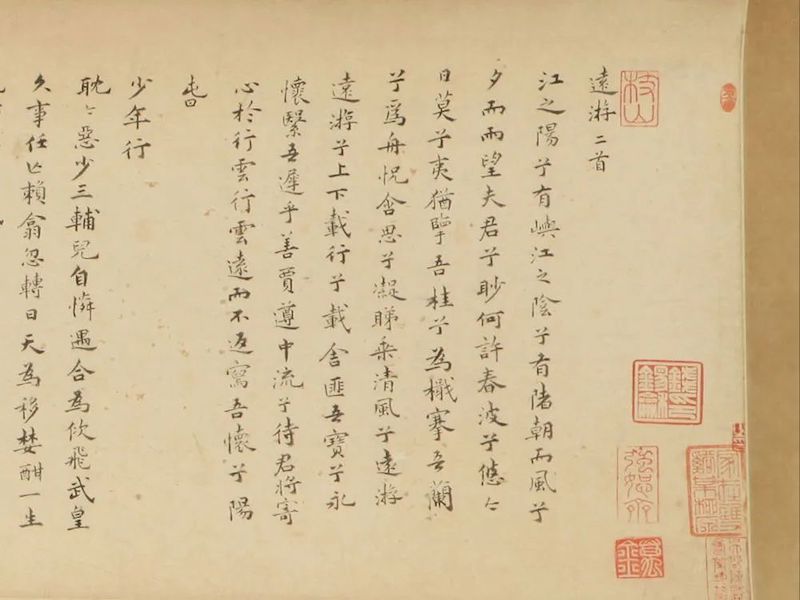 枝山
遠游二首
江之陽兮有嶼江之陰兮有陼朝而風兮
夕而雨望夫君兮眇何許春波兮悠〻
日莫兮夷猶吾桂兮為檝搴吾蘭
兮爲舟怳含思兮凝睇乘清風兮遠游
遠游兮上下載行兮載舍匪吾寶兮永
懷繄吾遲乎善賈遵中流兮待君將寄
心於行雲行雲遠而不返寫吾懷兮陽
旾
少年行
耽〻惡少三輔兒自憐遇合為佽飛武皇
久事任亾賴翕忽轉日天為移婪酣一生